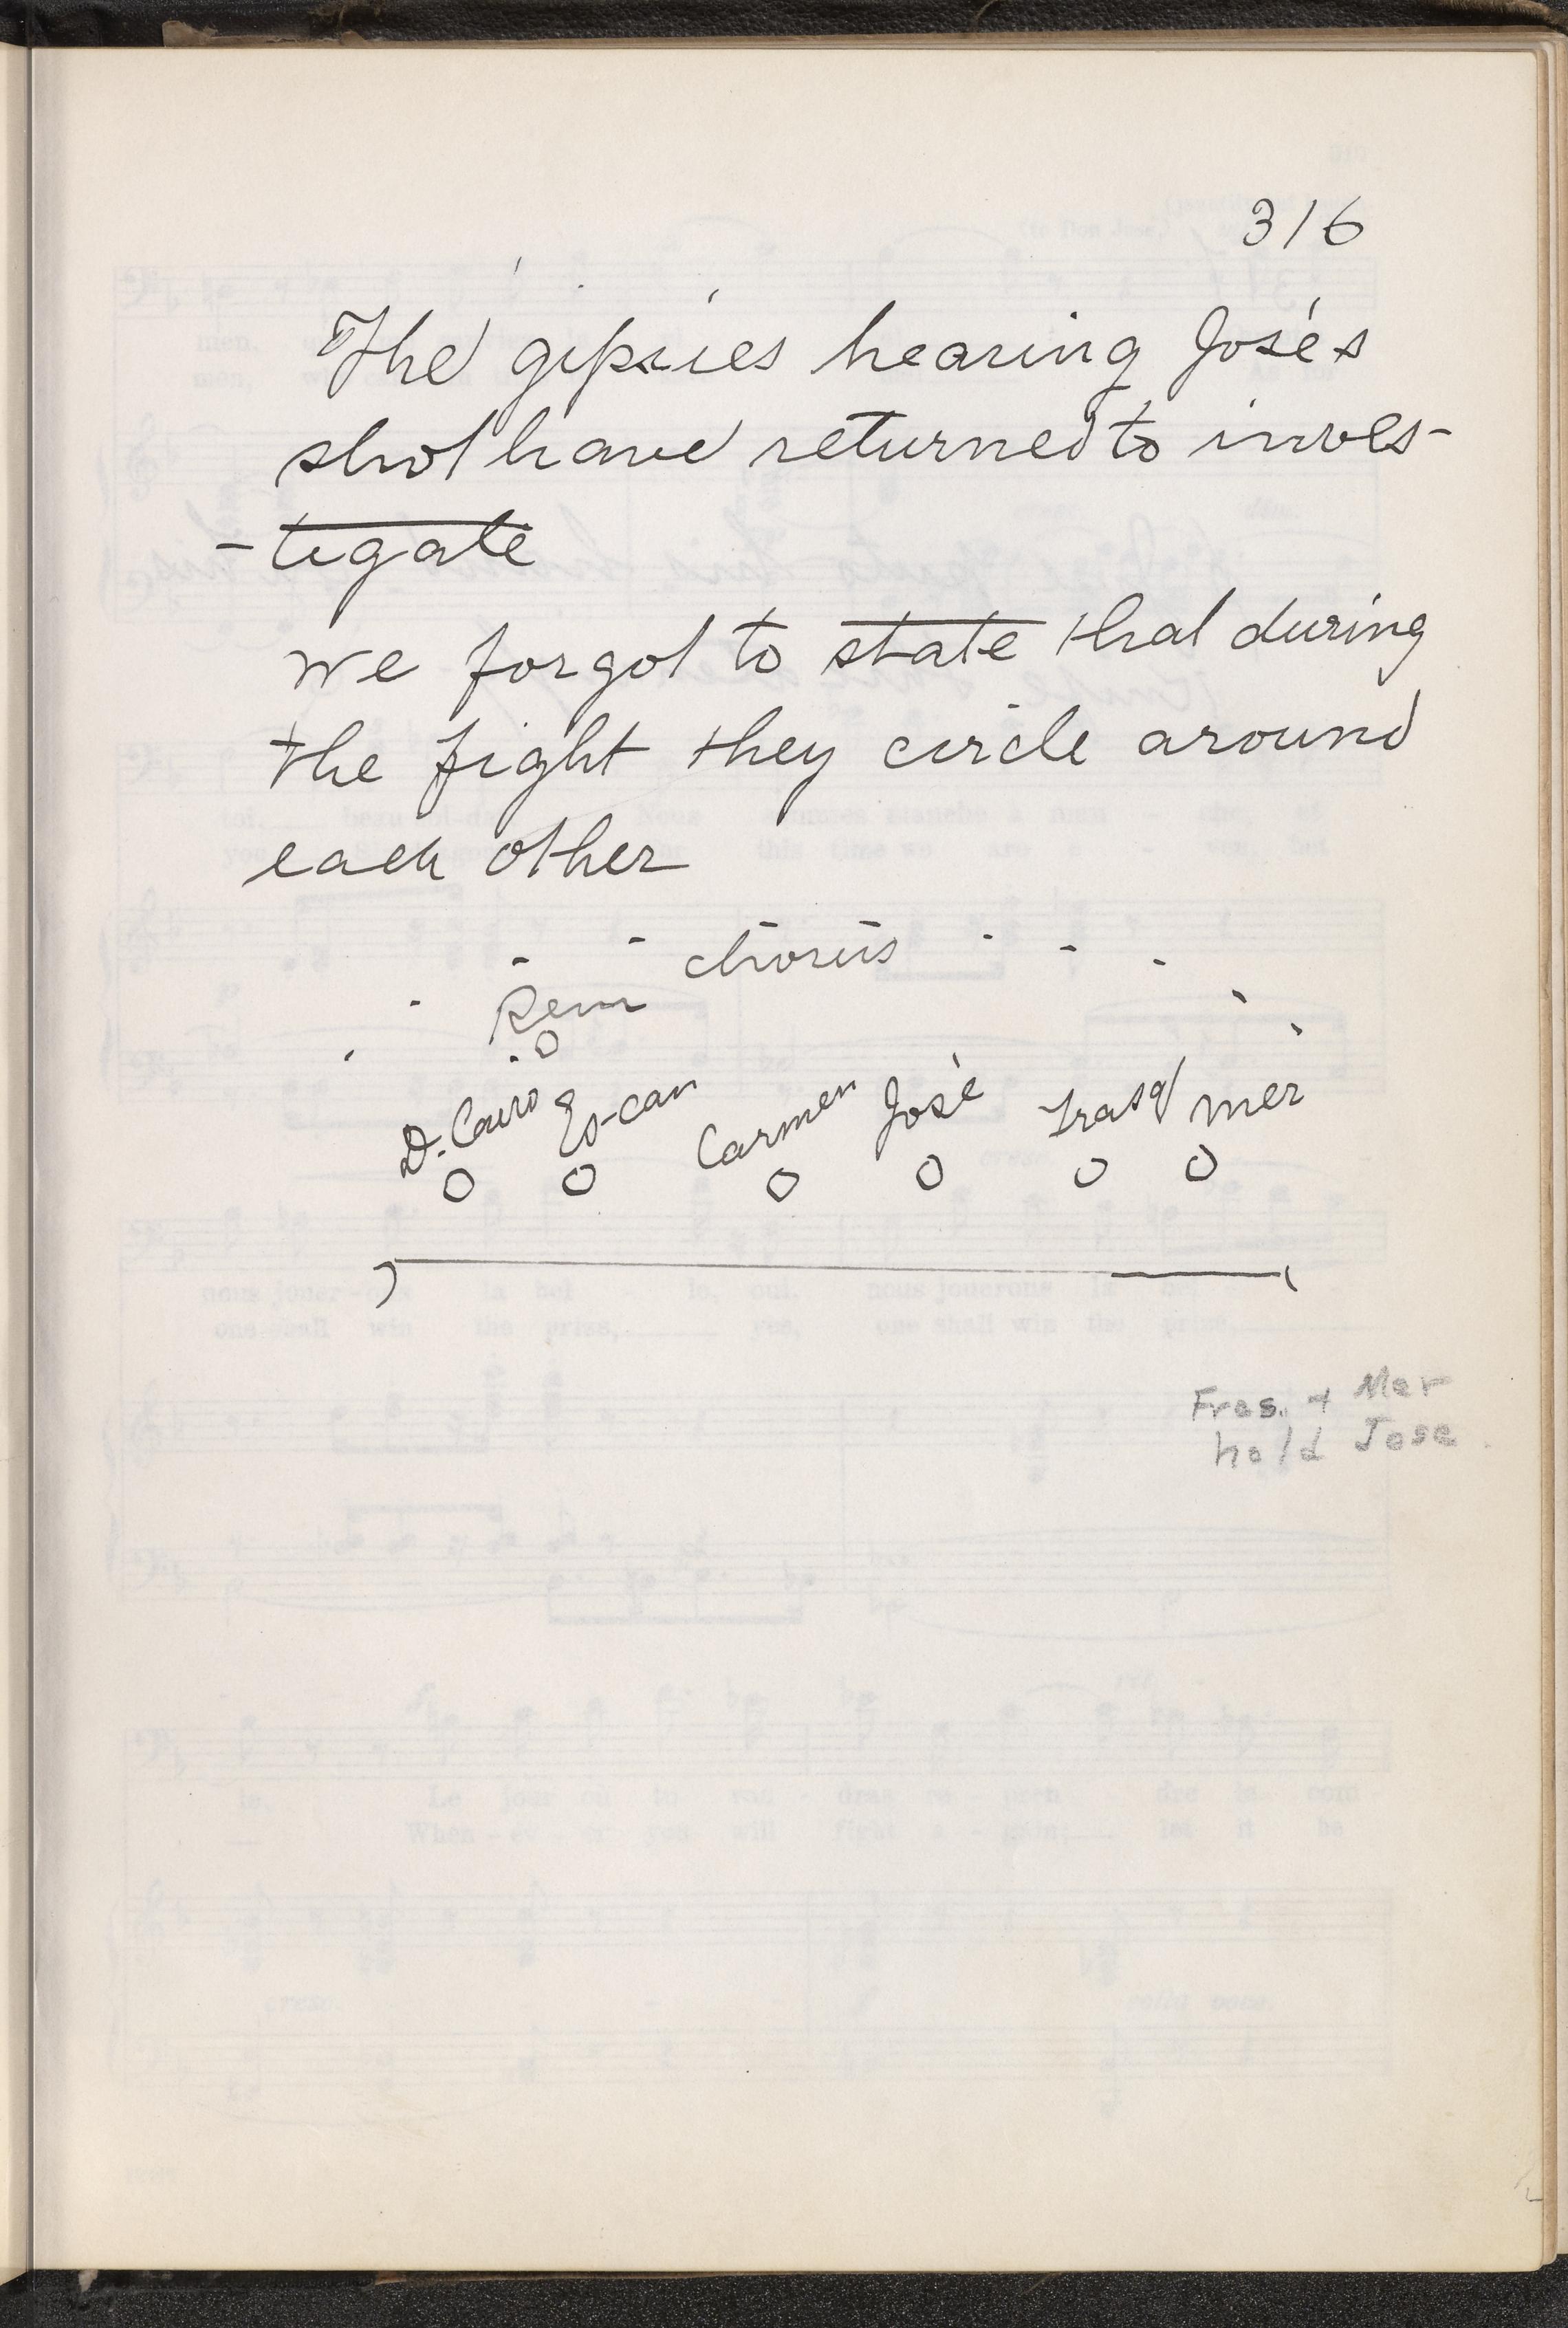 316
The gipsies hearing José's
shot have returned to inves-
-tigate
we forgot to state that during
the fight they circle around
each other
chorus
Rem
D. Cairo Es-can Carmen José Frasq mer
Fras. + Mer
hold Jose